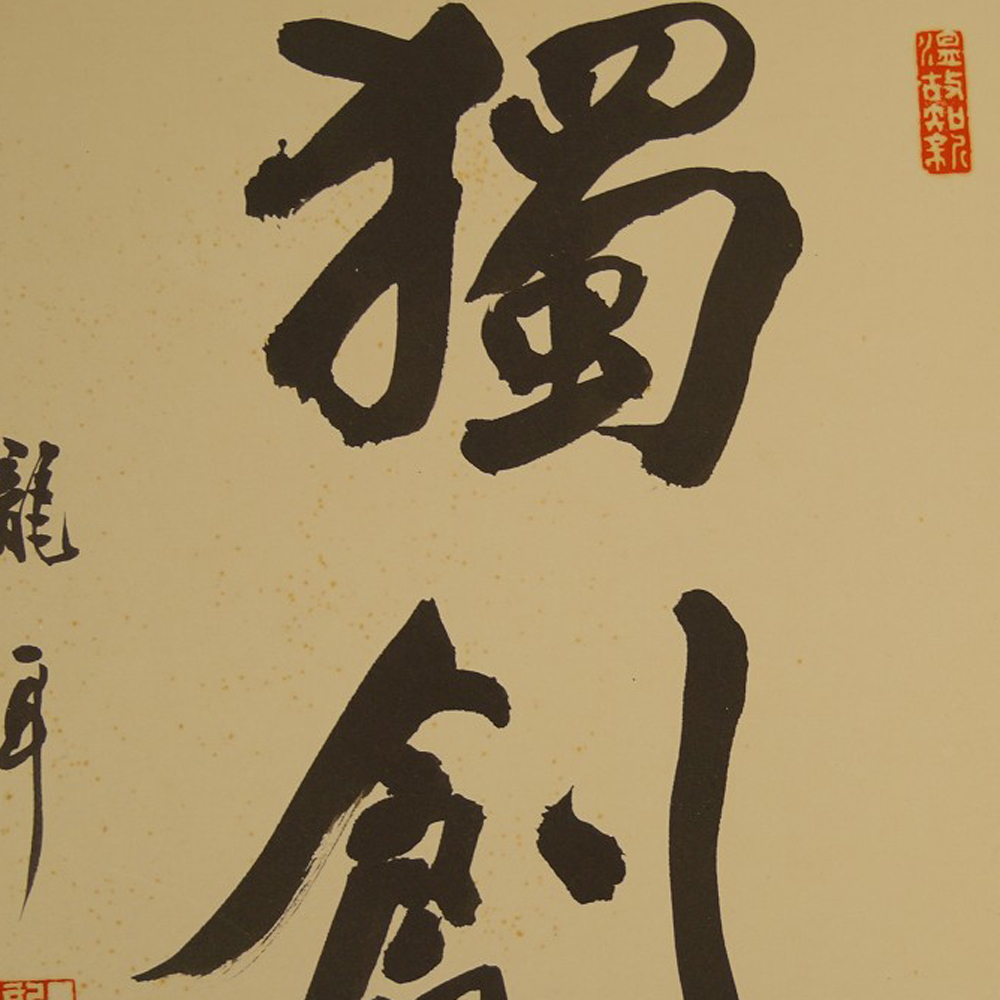 溫故知新
獨創
龍耳